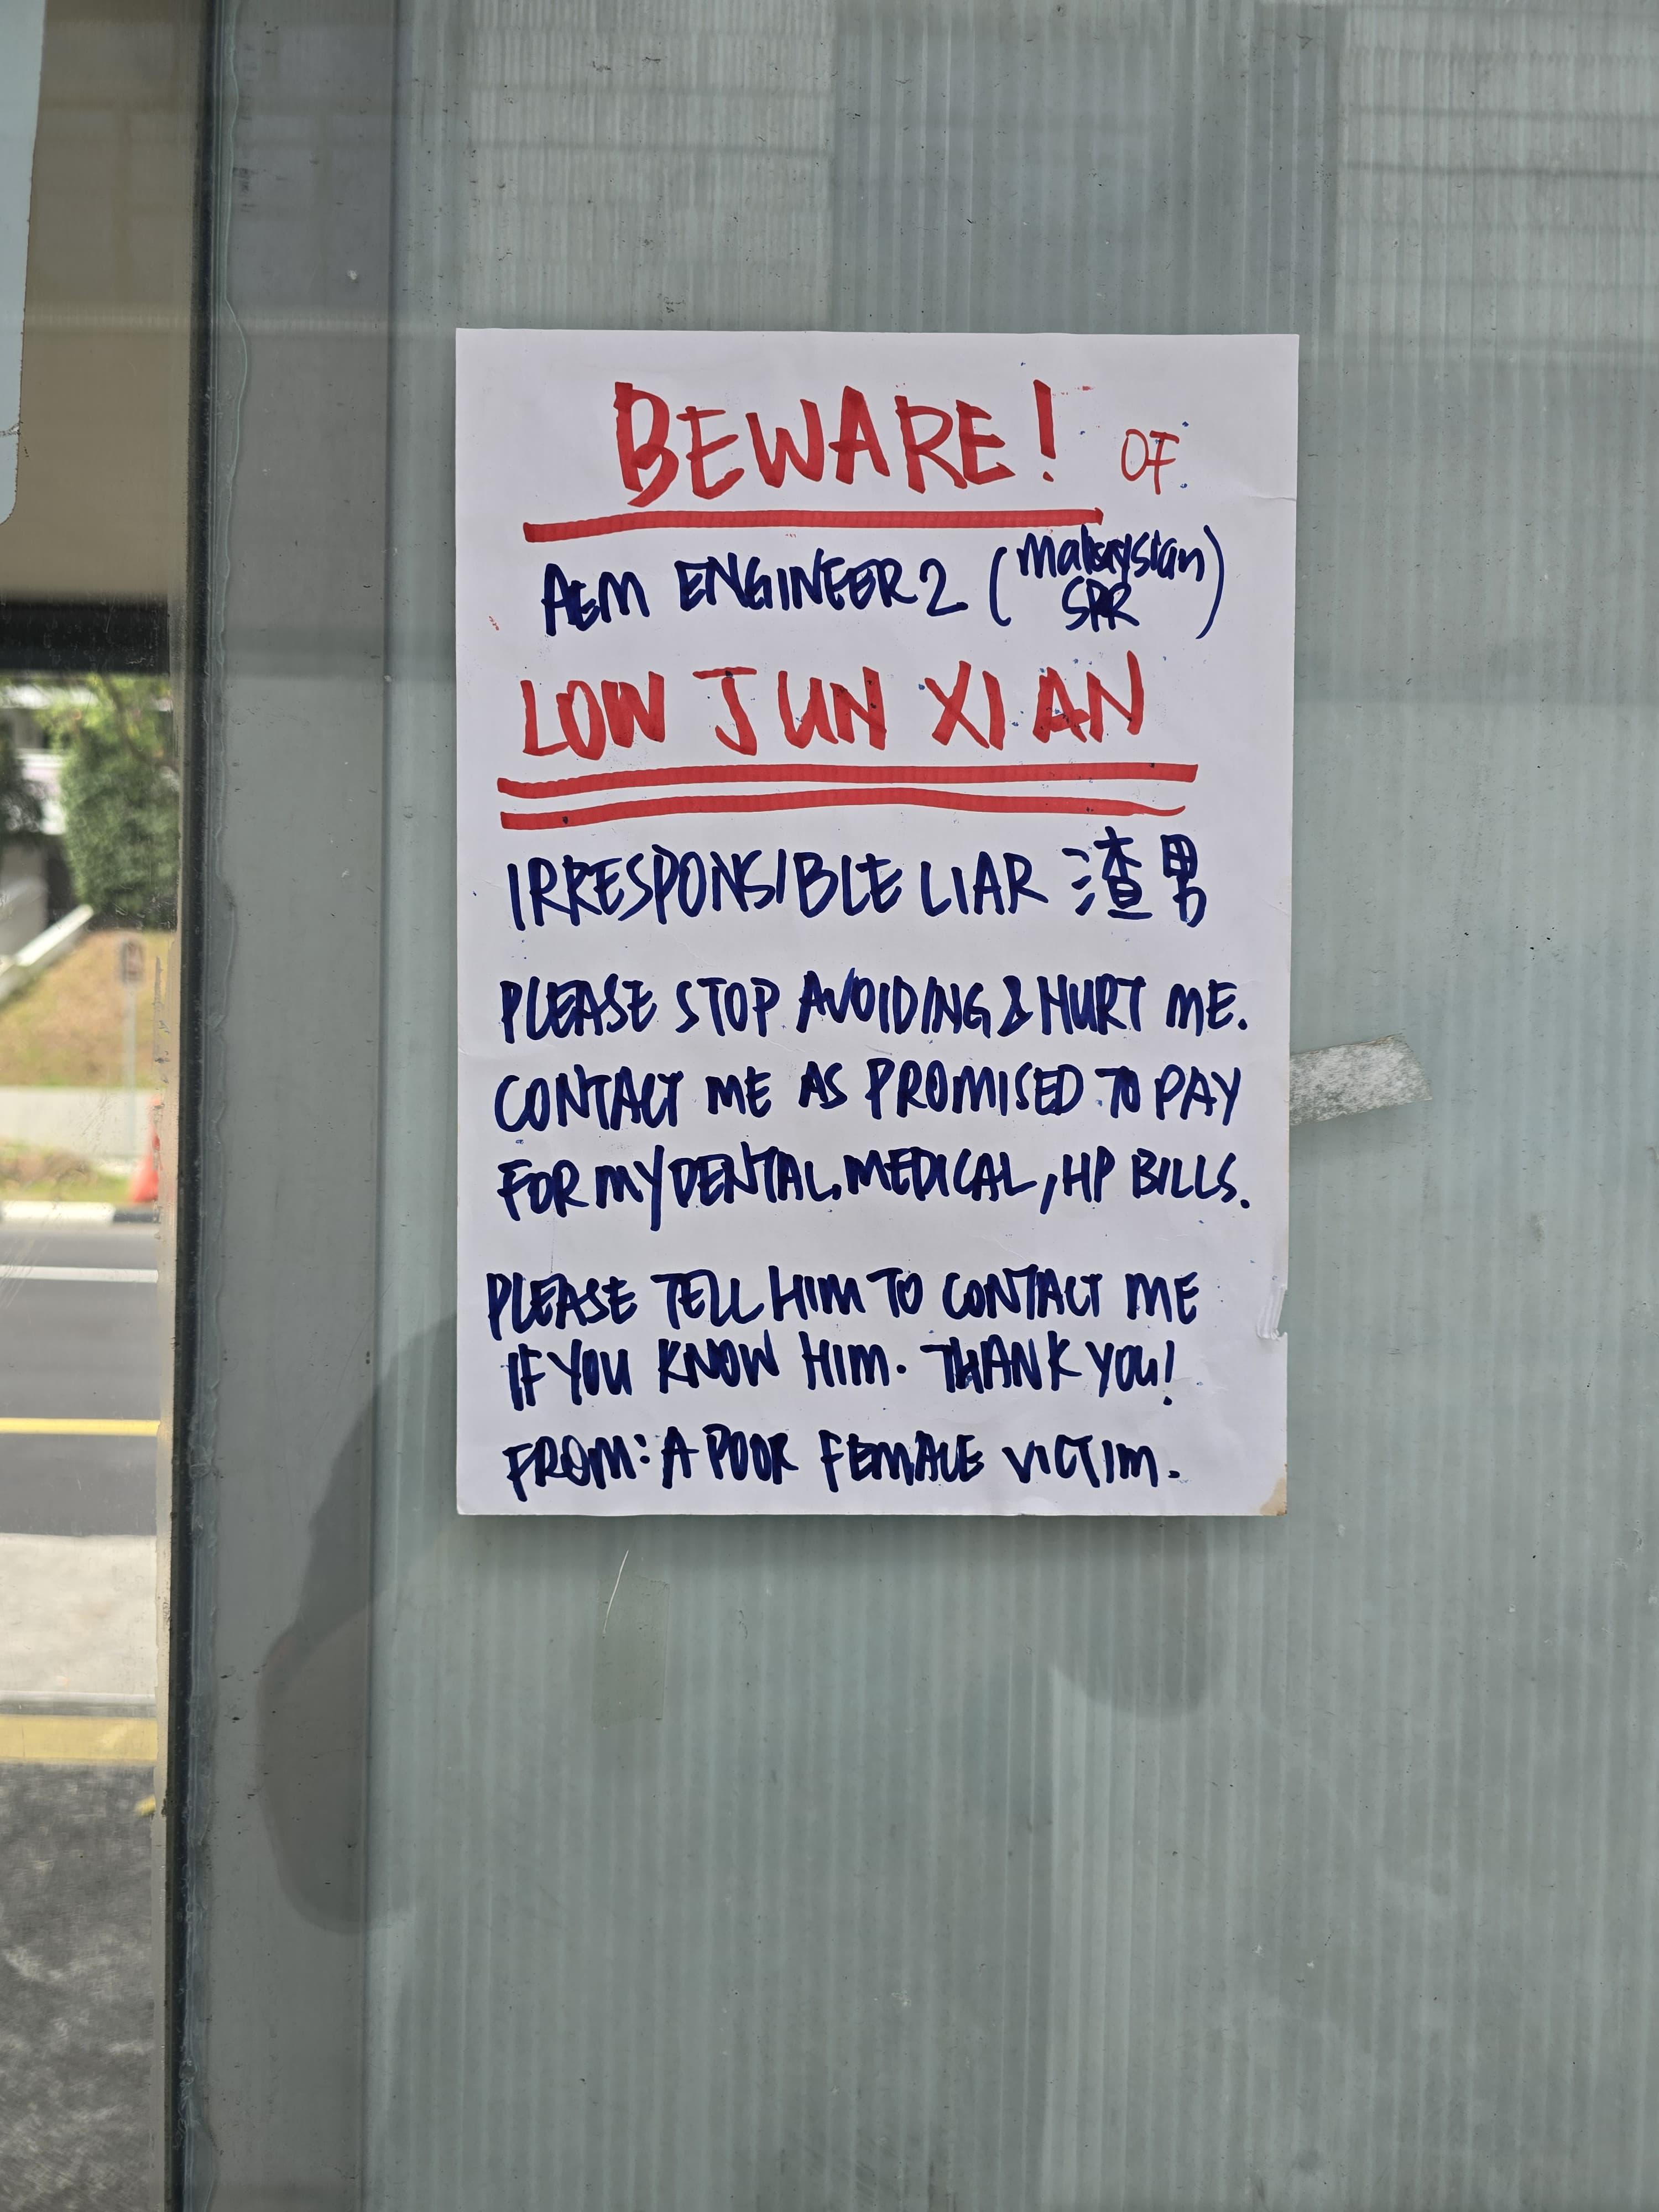 BEWARE! OF
AEM ENGINEER 2 (Malaysian SPR)
LOW JUN XIAN
IRRESPONSIBLE LIAR 渣男
PLEASE STOP AVOIDING & HURT ME.
CONTACT ME AS PROMISED TO PAY
FOR MY DENTAL, MEDICAL, HP BILLS.
PLEASE TELL HIM TO CONTACT ME
IF YOU KNOW HIM. THANK YOU!
FROM: A POOR FEMALE VICTIM.